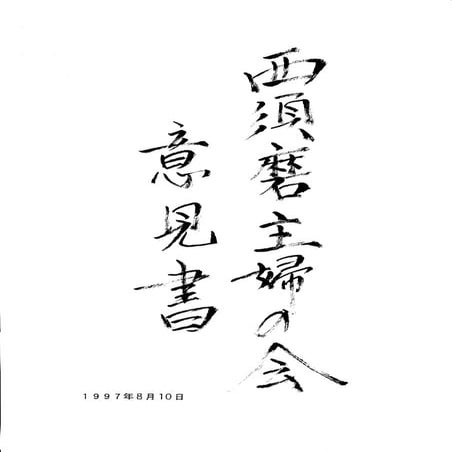 西須磨主婦の会
意見書
1997年8月10日